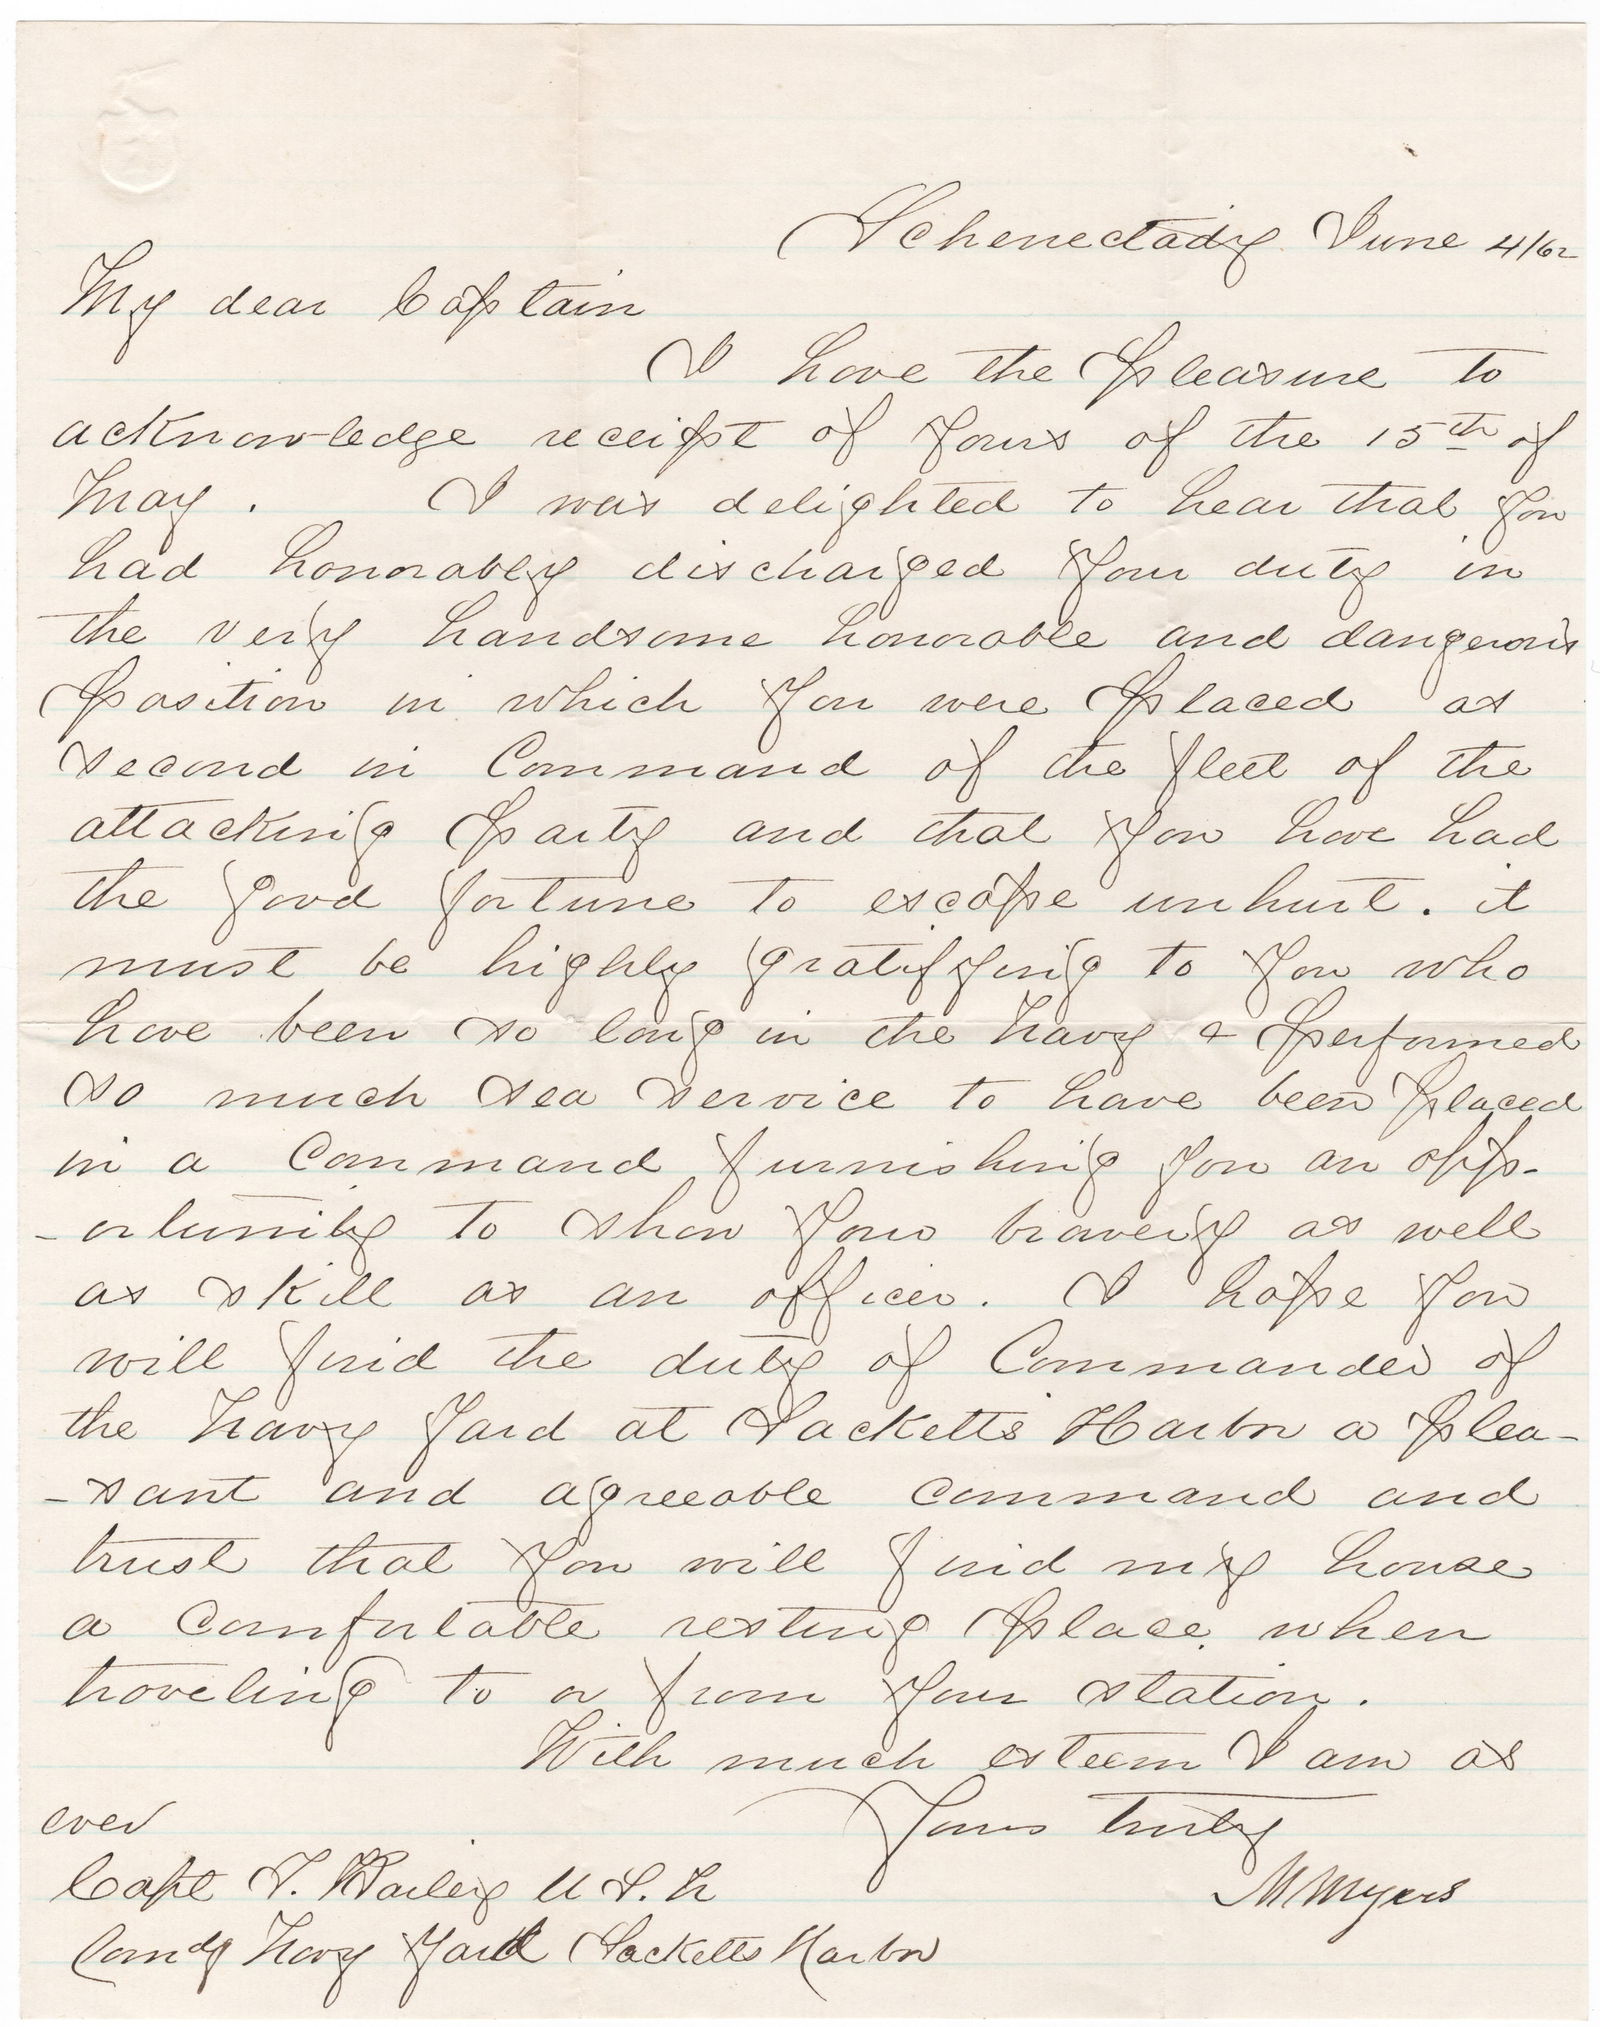 Schenectady June 4/62
My dear Captain
I have the pleasure to
acknowledge receipt of yours of the 15th of
May. I was delighted to hear that you
had honorably discharged your duty in
the very handsome honorable and dangerous
position in which you were placed as
second in Command of the fleet of the
attacking party and that you have had
the good fortune to escape unhurt. it
must be highly gratifying to you who
have been so long in the Navy & performed
so much sea service to have been placed
in a Command furnishing you an opp-
-ortunity to show your bravery as well
as skill as an officer. I hope you
will find the duty of Commander of
the Navy Yard at Sacketts Harbor a plea-
-sant and agreeable command and
trust that you will find my house
a comfortable resting place when
traveling to or from your station.
With much esteem I am as
ever
Yours truly
M Myers
Capt T. Bailey U.S.N
Comdg Navy Yard Sacketts Harbor